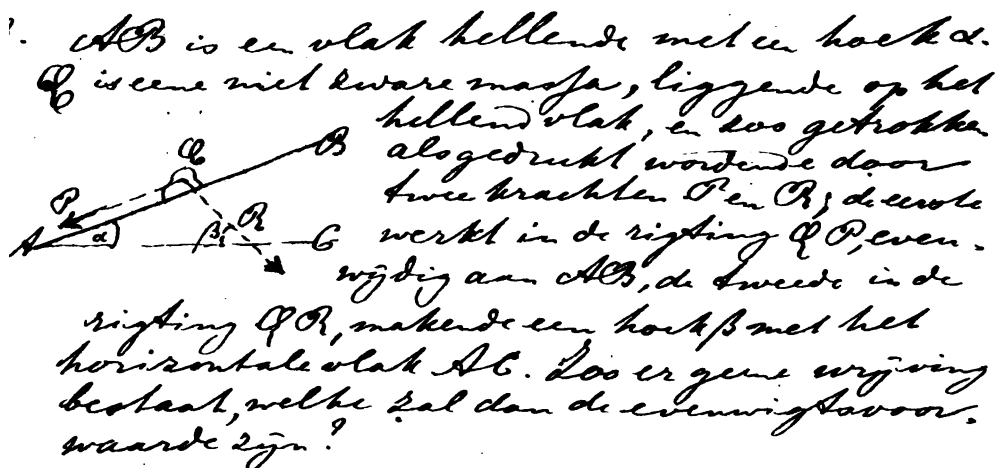 AB is een vlak hellende met een hoek α.
Q is eene niet zware massa, liggende op het
hellend vlak, en zoo getrokken
als gedrukt wordende door
twee krachten P en R; de eerste
werkt in de rigting QP, even-
wijdig aan AB, de tweede in de
rigting QR, makende een hoek β met het
horizontale vlak AC. Zoo er geene wrijving
bestaat, welke zal dan de evenwigtsvoor-
waarde zijn?
Q
B
P
R
A
α
β
C